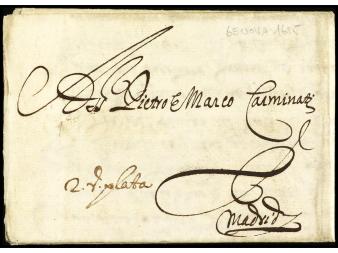 GENOVA - 1615
A Ss Pietro e Marco Carminati
2 Rs plata
Madrid